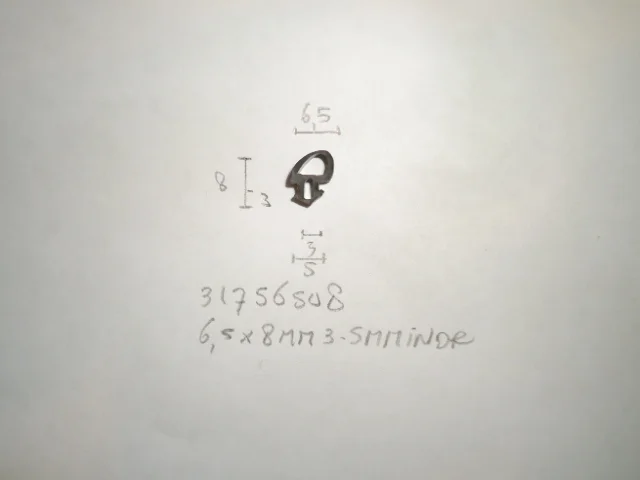 6,5
8
3
3
5
31756508
6,5x8MM 3-5MMINDR